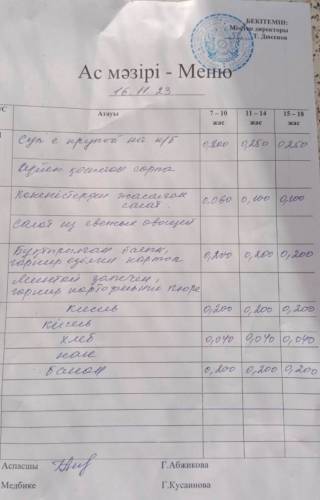 БЕКІТЕМІН:
Мектеп директоры
Т. Дюсенов
Ас мәзірі - Меню
16.11.23
Атауы 7 – 10 жас 11 – 14 жас 15 – 18 жас
Суп с крупой на к/б 0,200 0,250 0,250
сорпа
Көкөністерден жасалған 0,060 0,100 0,100
салат.
салат из свежих овощей
Бұқтырылған балық, 0,200 0,200 0,200
гарнир картоп
Минтай запечен,
гарнир картофельное пюре
Кисель 0,200 0,200 0,200
Кисель
хлеб 0,040 0,040 0,040
нан
Банан 0,200 0,200 0,200
Аспасшы Г.Абжикова
Медбике Г.Кусаинова